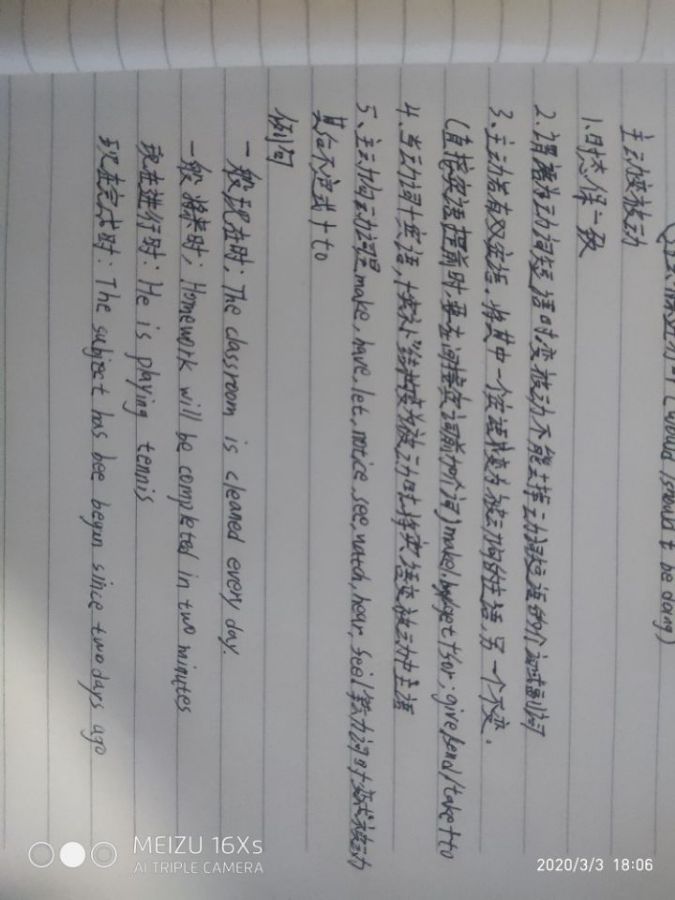 (would / should + be doing)
主动变被动
1.时态保一致
2.谓语为动词短语时,变被动不能去掉动词短语的介词或副词
3.主动语有双宾语,将其中一个宾语变为被动句的主语,另一个不变.
(直接宾语提前时要在间接宾语前加介词) make/buy/get+for; give/send/take+to
4.当动词+宾语+“宾补”结构变为被动时,将宾语变被动中主语
5、主动句动词是make, have, let, notice, see, watch, hear, feel等动词时 变成被动
其后不定式+to
例句
一般现在时; The classroom is cleaned every day.
一般将来时; Homework will be completed in two minutes
现在进行时: He is playing tennis
现在完成时: The subject has bee begun since two days ago
MEIZU 16Xs
AI TRIPLE CAMERA
2020/3/3 18:06